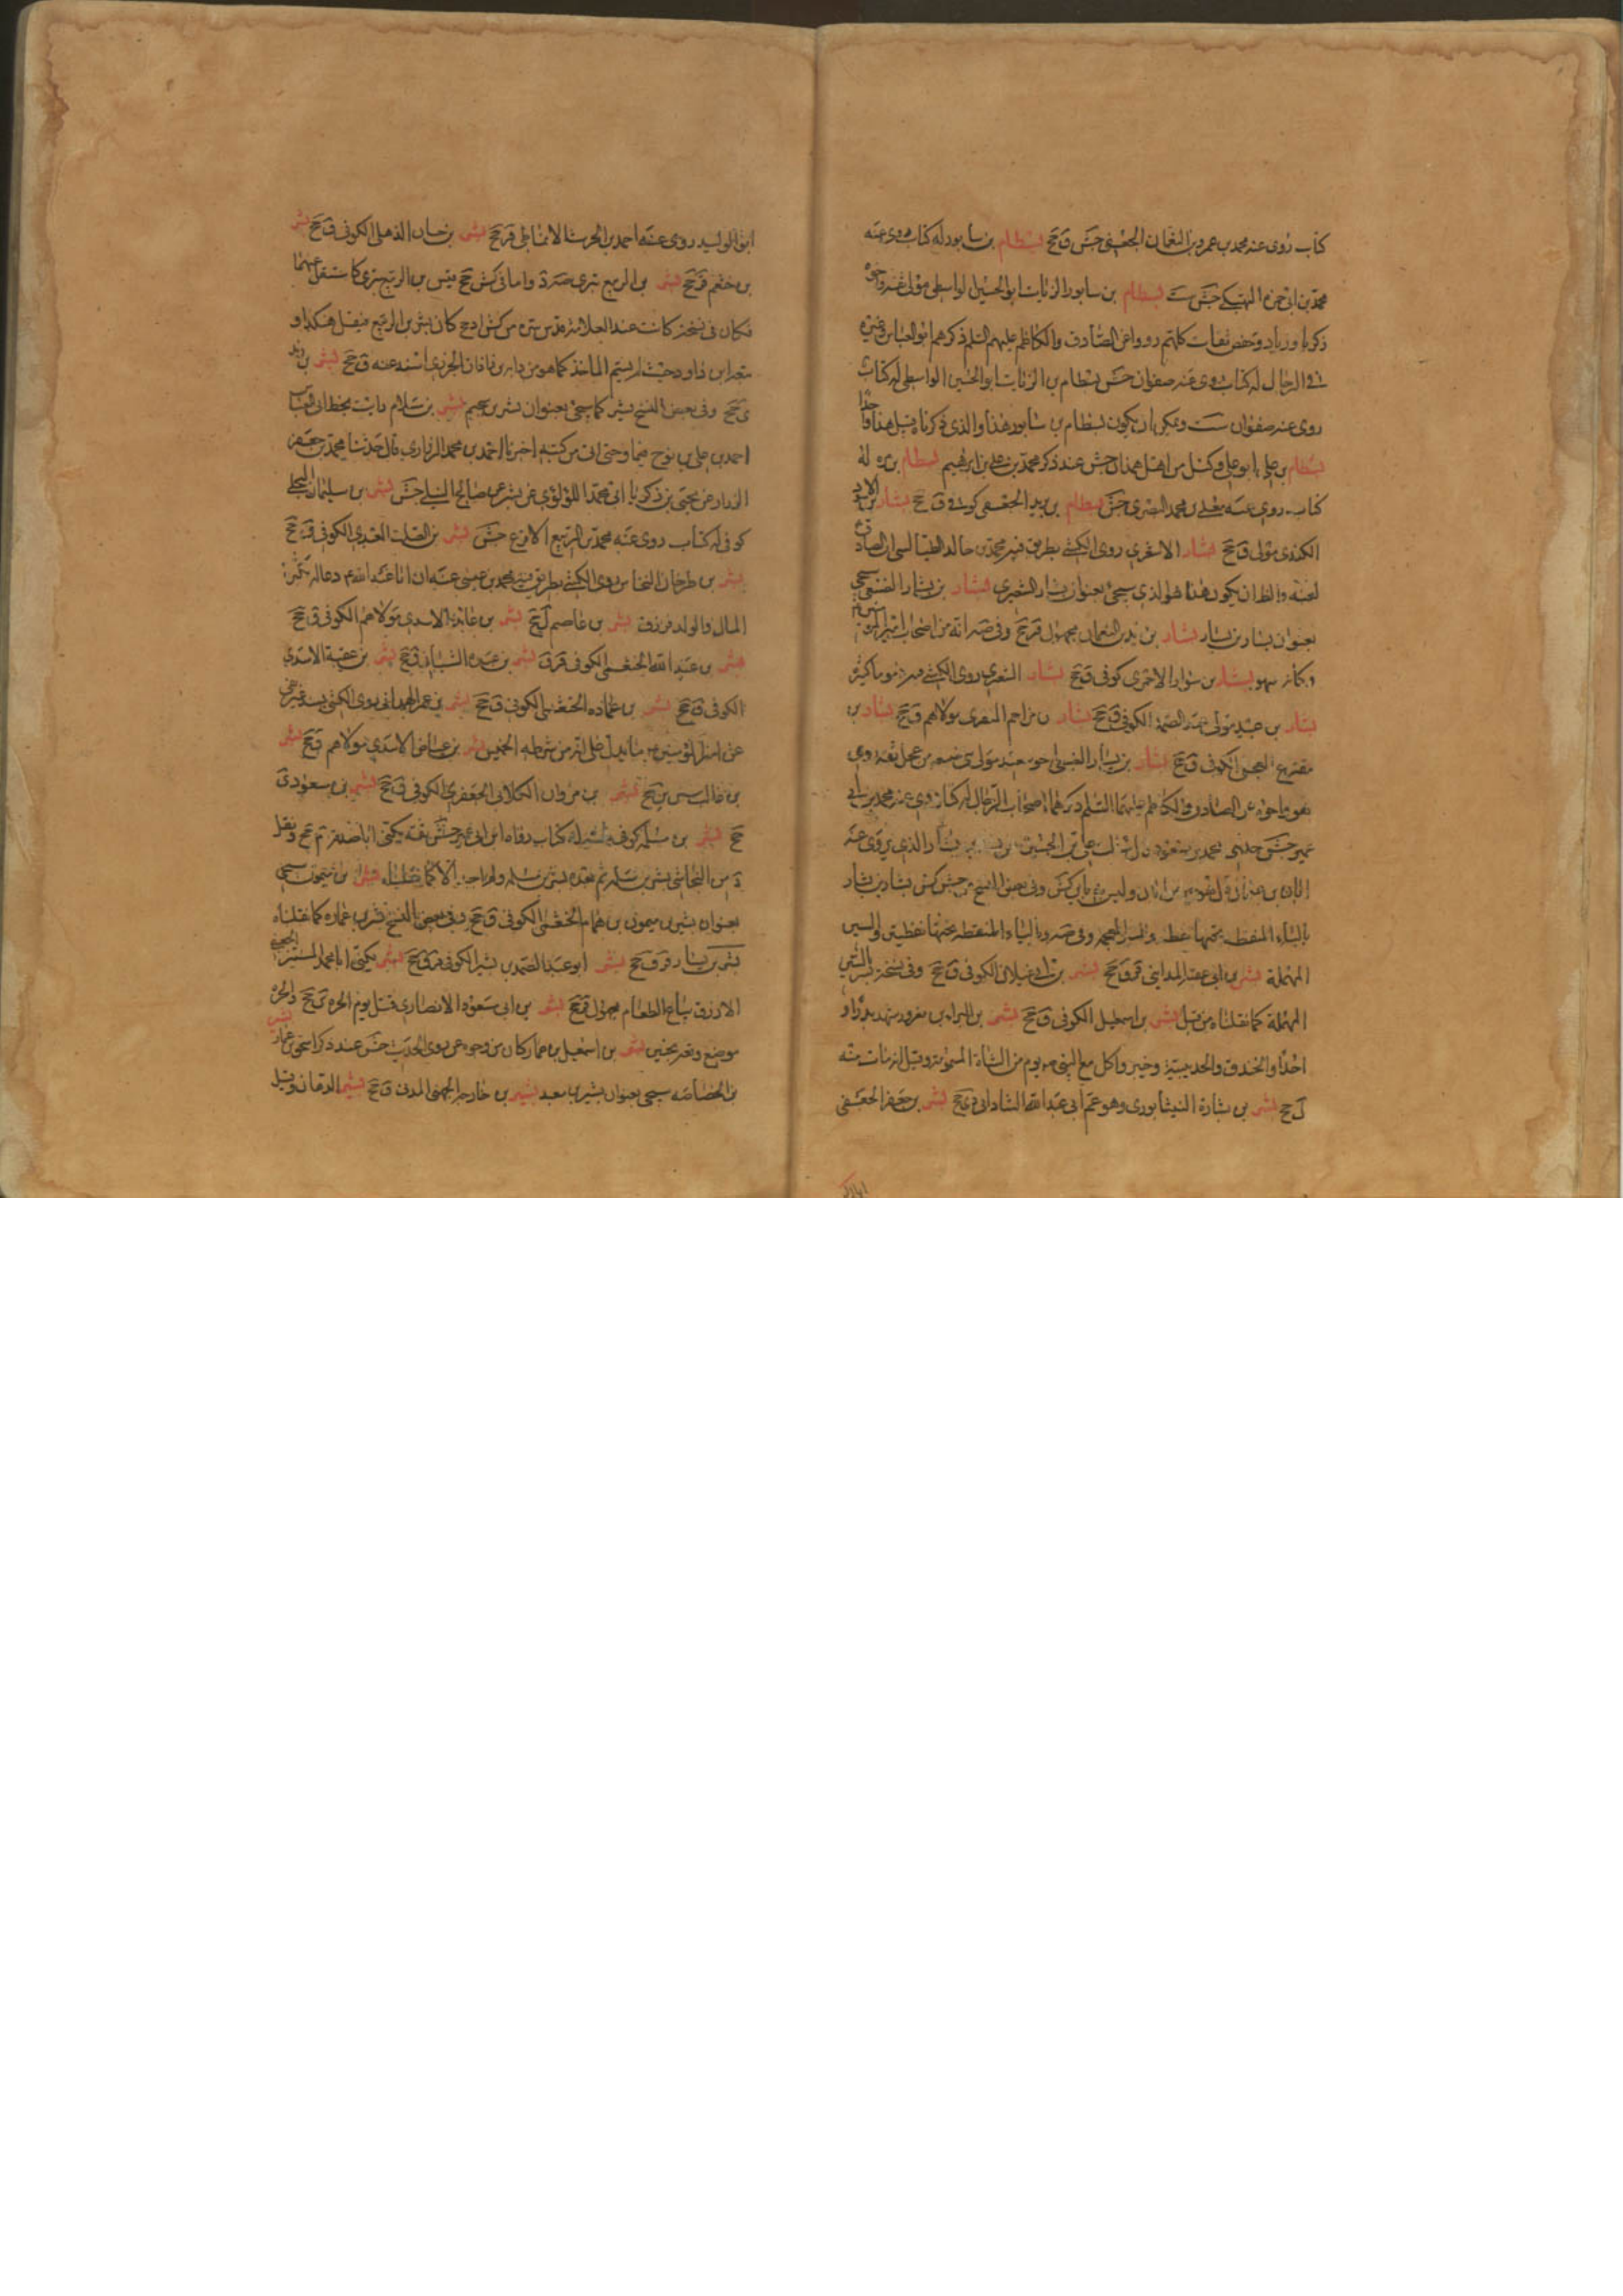 كتاب روى عنه محمد بن عمرو بن النعمان الجعفى جش ق جخ بسطام بن سابور له كتاب روى عنه
محمد بن ابى حمزه جش ست بسطام بن سابور الزيات ابو الحسين الواسطى مولى ثقة واخوته
زكريا وزياد وحفص ثقات كلهم رووا عن الصادق والكاظم عليهم السلم ذكرهم ابو العباس وغيره
فى الرجال له كتاب روى عنه صفوان جش بسطام بن الزيات ابو الحسين الواسطى له كتاب
روى عنه صفوان ست ويمكن ان يكون بسطام بن سابور هذا والذى ذكرناه قبل هذا واحدا
بسطام بن على ابو على وكيل من اهل همدان جش عند ذكر محمد بن على بن ابرهيم بسطام بن مره له
كتاب روى عنه معلى بن محمد البصرى جش بسطام بن يزيد الجعفى كوفى ق جخ بشار بن الاسود
الكندى مولى ق جخ بشار الاشعرى روى الكشى بطريق فيه محمد بن خالد الطيالسى ان الصادق ع
لعنه والظان يكون هذا هو الذى سيجئ بعنوان بشار الشعيرى بشار بن بشار الضبعى سيجئ
بعنوان بشار بن يسار بشار بن زيد بن النعمان مجهول قر جخ وفى صه انه من اصحاب امير المؤمنين
وكانه سهو بشار بن سوار الاحمرى كوفى ق جخ بشار الشعيرى روى الكشى فيه ذموما كثيرة
بشار بن عبيد مولى عبد الصمد الكوفى ق جخ بشار بن مزاحم المنقرى مولاهم ق جخ بشار بن
مقترع العجلى الكوفى ق جخ بشار بن يسار الضبعى اخو سعيد مولى بنى ضبيعه من عجل ثقة روى
هو واخوه عن الصادق والكاظم عليهما السلم ذكرهما اصحاب الرجال له كتاب روى عنه محمد بن ابى
عمير جش حدثنى محمد بن مسعود قال سئلت على بن الحسن عن بشار بن بشار الذى يروى عنه
ابان بن عثمن قال هو خير من ابان وليس به باس كش وفى بعض النسخ من جش كش بشار بن بشار
بالباء المنقطه تحتها نقطه والشين المعجمه وفى صه و بالياء المنقطه تحتها نقطتين والسين
المهملة بشر بن ابى عقبه المداينى قر ق جخ بشر بن ابى غيلان الكوفى ق جخ وفى نسخة بسر بالسين
المهملة كما نقلناه من قبل بشر بن اسمعيل الكوفى ق جخ بشر بن البراء بن معرور شهد بدرا و
احدا والخندق والحديبية وخيبر واكل مع النبى ص يوم من الشاة المسمومة وقيل انه مات منه
ل جخ بشر بن بشارة النيشابورى وهو عم ابى عبد الله الشاذانى دى جخ بشر بن جعفر الجعفى
ابو الوليد روى عنه احمد بن الحرث الانماطى قر جخ بشر بن حسان الذهلى الكوفى ق جخ بشر
بن خثعم قر جخ بشر بن الربيع بترى صه د واما فى كش جخ قيس بن الربيع بترى كما سننقل عنهما
فكان فى نسخة كانت عند العلامة قدس سره من كش او جخ كان بشر بن الربيع فنقل هكذا و
تبعه ابن داود حيث لم يسم الماخذ كما هو من دابه بن زاذان الجزرى اسند عنه ق جخ بشر بن زيد
ى جخ وفى بعض النسخ بشير كما سيجئ بعنوان بشر بن سحيم بشر بن سلام رايت بخط ابى العباس
احمد بن على بن نوح فيما وصى الى من كتبه اخبرنا احمد بن محمد الزرارى قال حدثنا محمد بن جعفر
الرزاز عن يحيى بن زكريا ابى محمد اللؤلؤى عن بشر عن صالح النيلى جش بشر بن سليمان البجلى
كوفى له كتاب روى عنه محمد بن الربيع الاقرع جش بشر بن الصلت العبدى الكوفى ق جخ
بشر بن طرخان النخاس روى الكشى بطريق فيه محمد بن عيسى عنه ان ابا عبد الله ع دعا له بكثرة
المال والولد فرزق بشر بن عاصم ل جخ بشر بن عائذ الاسدى مولاهم الكوفى ق جخ
بشر بن عبد الله الخثعمى الكوفى قر ق بشر بن عبده الشيبانى ق جخ بشر بن عقبة الاسدى
الكوفى ق جخ بشر بن عماره الخثعمى الكوفى ق جخ بشر بن عمر الهمدانى روى الكشى بسند فيه
عن امير المؤمنين ع ما يدل على انه من شرطه الخميس بشر بن عياض الاسدى مولاهم ق جخ بشر
بن غالب سى ين جخ بشر بن مروان الكلابى الجعفرى الكوفى ق جخ بشر بن مسعود ى
جخ بشر بن مسلمه كوفى ثقة له كتاب رواه ابن ابى عمير جش ثقه يكنى ابا صدقه م جخ ونقل
د من النجاشى بشر بن سلمه ثم بعده بشر بن مسلمه ولم اجد الا كما نقلناه بشر بن ميمون سيجئ
بعنوان بشير بن ميمون بن همام الخثعمى الكوفى ق جخ وفى بعض النسخ بشر بن عماره كما نقلناه
بشر بن يسار قر ق جخ بشير ابو عبد الصمد بن بشير الكوفى قر ق جخ بشير يكنى ابا محمد المستنير الجعفى
الازرق بياع الطعام مجهول قر جخ بشير بن ابى مسعود الانصارى قتل يوم الحره ى جخ والحره
موضع وقعه بحنين بشير بن اسمعيل بن عمار كان من وجوه من روى الحديث جش عند ذكر اسحق بن عمار بشير
بن الخصاصه سيجئ بعنوان بشير بن معبد بشير بن خارجه الجهنى المدنى ق جخ بشير الدهان وقيل